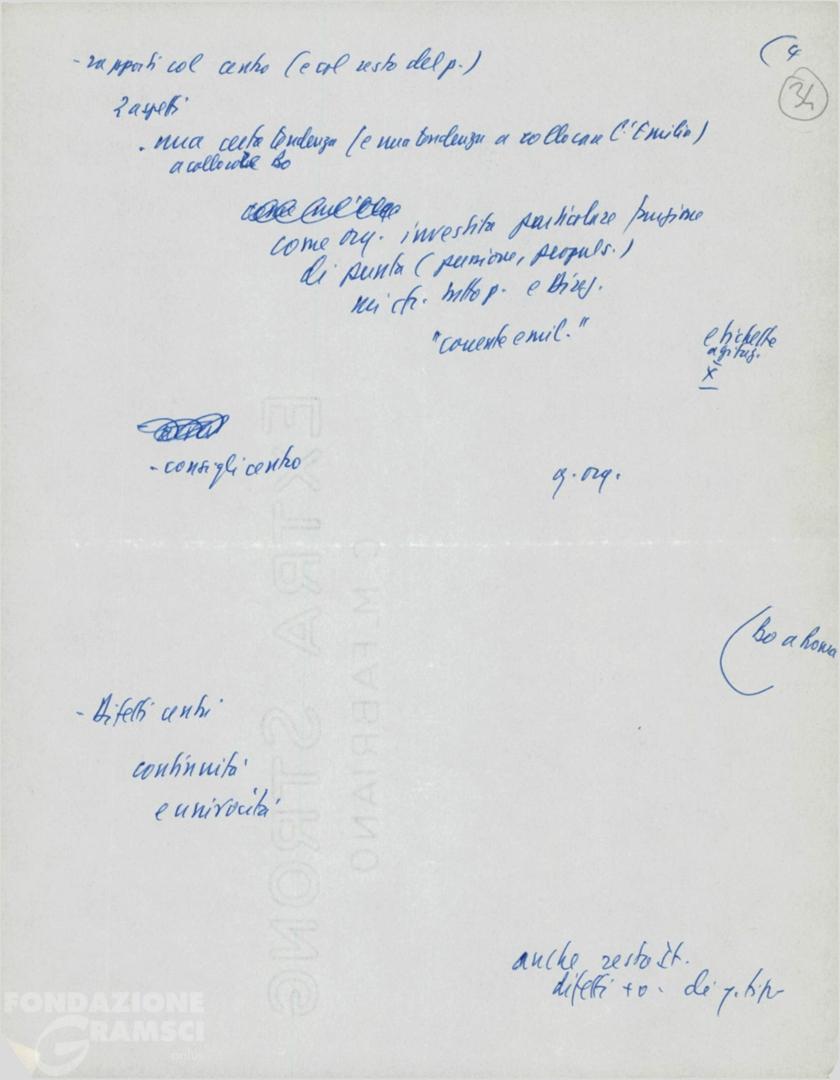 (4
34
- rapporti col centro (e col resto del p.)
2 aspetti
. una certa tendenza (e una tendenza a collocare l'Emilia)
a collocare Bo
come org. investita particolare funzione
di punta (pressione, propuls.)
nei cfr. tutto p. e Direz.
"corrente emil."
etichette
x
- consigli centro
q. org.
(Bo a Roma
- Difetti centri
continuità
e univocità
anche resto It.
difetti + o - di q. tipo
EXTRA STRONG
C.M.FABRIANO
FONDAZIONE
GRAMSCI
onlus